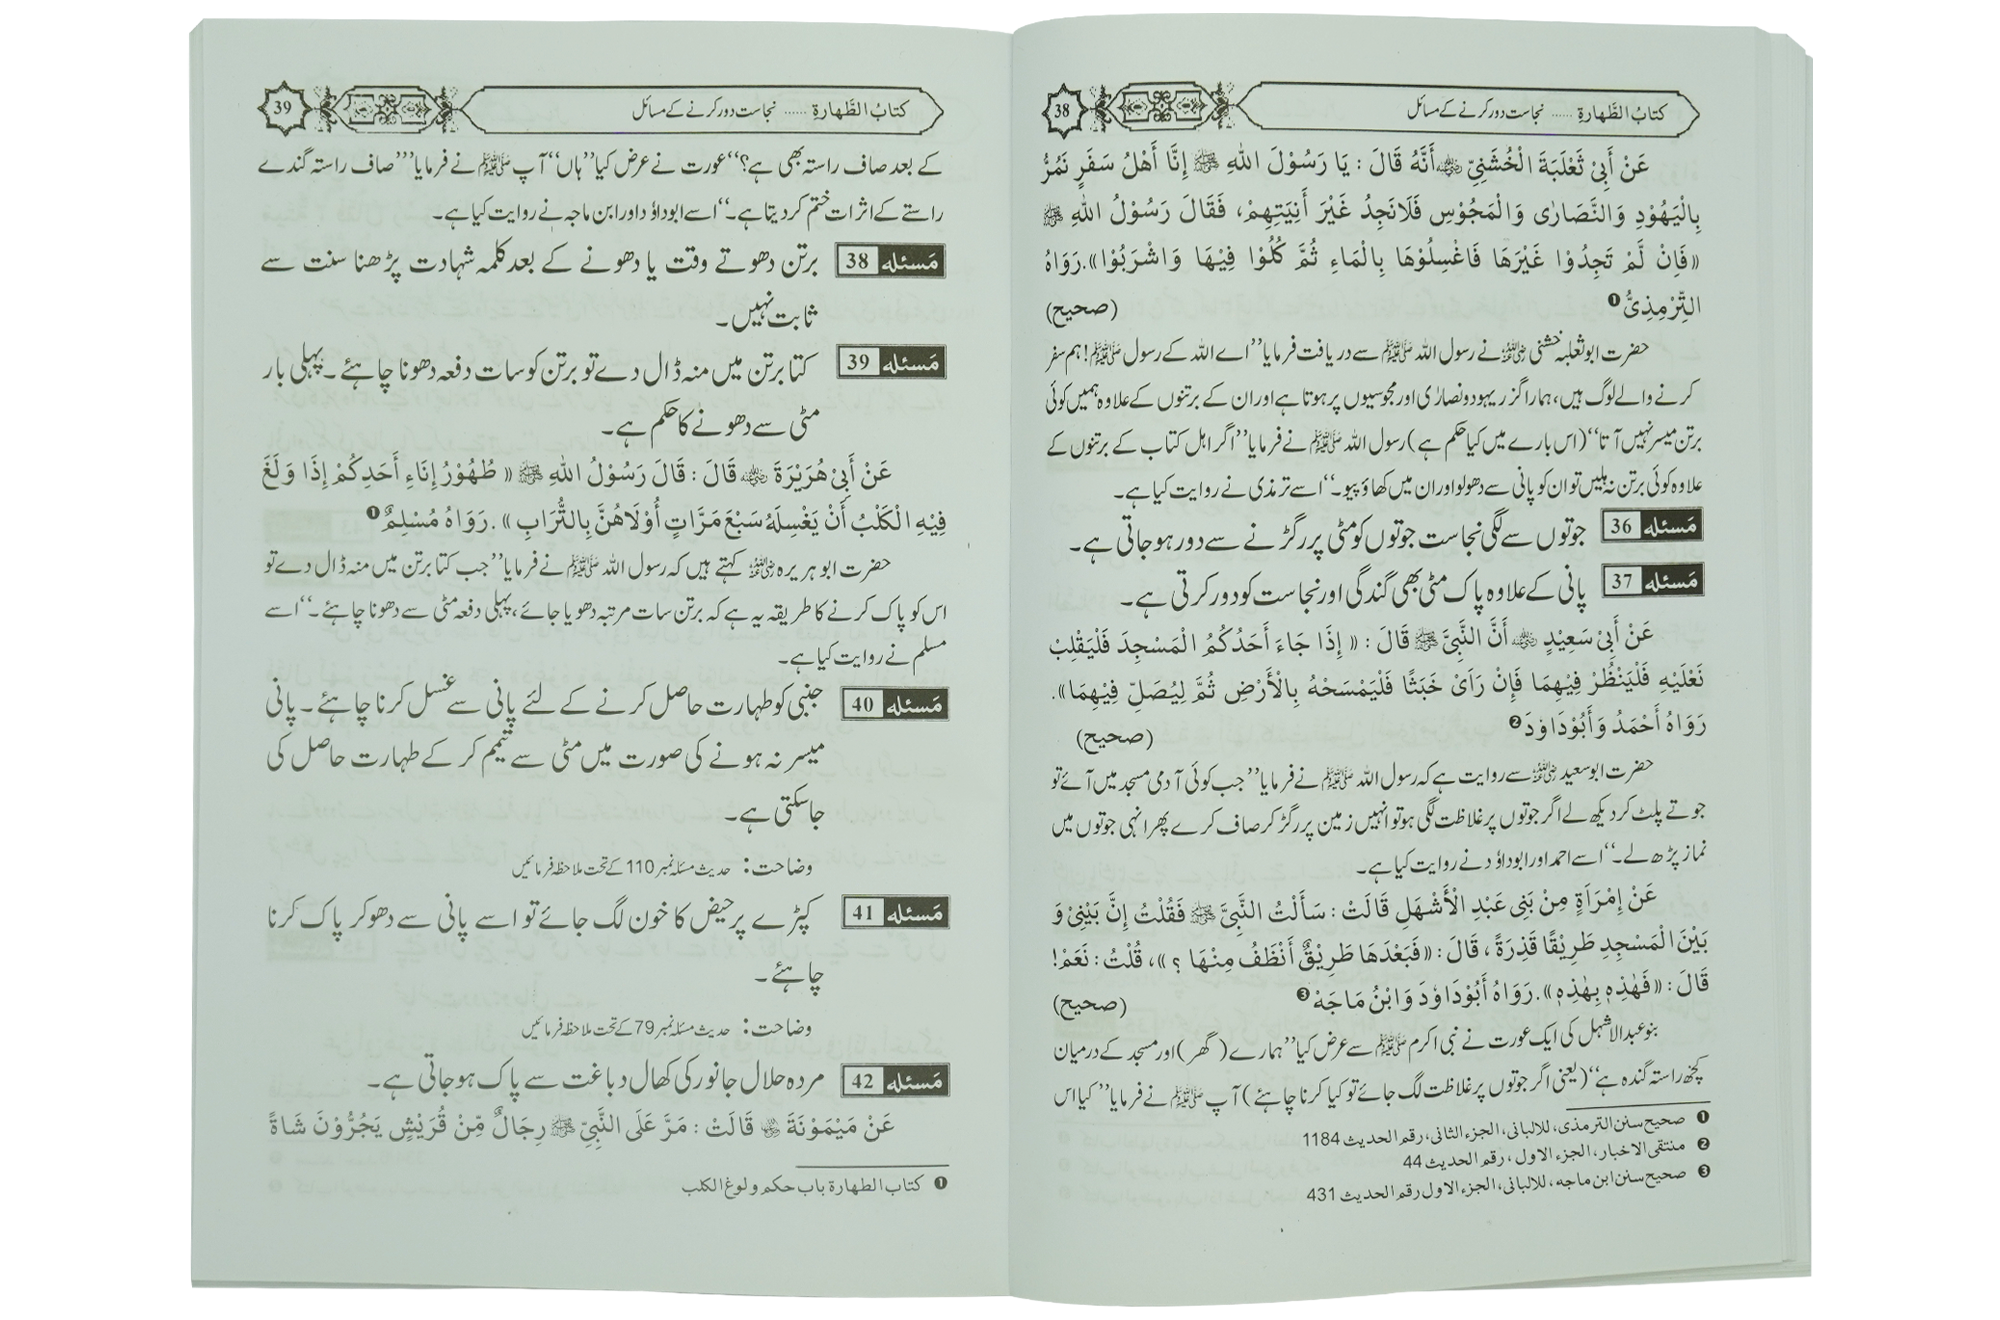 كتابُ الطَّهارةِ ...... نجاست دور کرنے کے مسائل
38
عَنْ أَبِیْ ثَعْلَبَةَ الْخُشَنِیِّ رضی اللہ عنہ أَنَّهُ قَالَ : يَا رَسُوْلَ اللّٰهِ ﷺ إِنَّا أَهْلُ سَفَرٍ نَمُرُّ
بِالْيَهُوْدِ وَالنَّصَارٰی وَالْمَجُوْسِ فَلَانَجِدُ غَيْرَ أٰنِيَتِهِمْ، فَقَالَ رَسُوْلُ اللّٰهِ ﷺ
((فَإِنْ لَّمْ تَجِدُوْا غَيْرَهَا فَاغْسِلُوْهَا بِالْمَاءِ ثُمَّ كُلُوْا فِيْهَا وَاشْرَبُوْا)).رَوَاهُ
التِّرْمِذِیُّ ❶ (صحيح)
حضرت ابو ثعلبہ خشنی رضی اللہ عنہ نے رسول اللہ ﷺ سے دریافت فرمایا ’’اے اللہ کے رسول ﷺ! ہم سفر
کرنے والے لوگ ہیں، ہمارا گزر یہود و نصارٰی اور مجوسیوں پر ہوتا ہے اور ان کے برتنوں کے علاوہ ہمیں کوئی
برتن میسر نہیں آتا‘‘ (اس بارے میں کیا حکم ہے) رسول اللہ ﷺ نے فرمایا ’’اگر اہل کتاب کے برتنوں کے
علاوہ کوئی برتن نہ ملیں تو ان کو پانی سے دھولو اور ان میں کھاؤ پیو۔‘‘ اسے ترمذی نے روایت کیا ہے۔
مَسئله 36 جوتوں سے لگی نجاست جوتوں کو مٹی پر رگڑنے سے دور ہو جاتی ہے۔
مَسئله 37 پانی کے علاوہ پاک مٹی بھی گندگی اور نجاست کو دور کرتی ہے۔
عَنْ أَبِیْ سَعِيْدٍ رضی اللہ عنہ أَنَّ النَّبِیَّ ﷺ قَالَ : (( إِذَا جَاءَ أَحَدُكُمُ الْمَسْجِدَ فَلْيَقْلِبْ
نَعْلَيْهِ فَلْيَنْظُرْ فِيْهِمَا فَإِنْ رَاَیْ خَبَثًا فَلْيَمْسَحْهُ بِالْأَرْضِ ثُمَّ لِيُصَلِّ فِيْهِمَا)).
رَوَاهُ أَحْمَدُ وَأَبُوْدَاوٗدَ ❷ (صحيح)
حضرت ابو سعید رضی اللہ عنہ سے روایت ہے کہ رسول اللہ ﷺ نے فرمایا ’’جب کوئی آدمی مسجد میں آئے تو
جوتے پلٹ کر دیکھ لے اگر جوتوں پر غلاظت لگی ہو تو انہیں زمین پر رگڑ کر صاف کرے پھر انہی جوتوں میں
نماز پڑھ لے۔‘‘ اسے احمد اور ابوداؤد نے روایت کیا ہے۔
عَنْ إِمْرَأَةٍ مِنْ بَنِی عَبْدِ الْأَشْهَلِ قَالَتْ : سَأَلْتُ النَّبِیَّ ﷺ فَقُلْتُ إِنَّ بَيْنِیْ وَ
بَيْنَ الْمَسْجِدِ طَرِيْقًا قَذِرَةً ، قَالَ : ((فَبَعْدَهَا طَرِيْقٌ أَنْظَفُ مِنْهَا ؟ ))، قُلْتُ : نَعَمْ!
قَالَ : ((فَهٰذِهٖ بِهٰذِهٖ )).رَوَاهُ أَبُوْدَاوٗدَ وَابْنُ مَاجَهْ ❸ (صحيح)
بنو عبد الاشہل کی ایک عورت نے نبی اکرم ﷺ سے عرض کیا ’’ہمارے (گھر) اور مسجد کے درمیان
کچھ راستہ گندہ ہے‘‘ (یعنی اگر جوتوں پر غلاظت لگ جائے تو کیا کرنا چاہئے) آپ ﷺ نے فرمایا ’’کیا اس
❶ صحيح سنن الترمذی، للالبانی، الجزء الثانی، رقم الحديث 1184
❷ منتقی الاخبار، الجزء الاول ، رقم الحديث 44
❸ صحيح سنن ابن ماجه، للالبانی، الجزء الاول رقم الحديث 431
كتابُ الطَّهارةِ ...... نجاست دور کرنے کے مسائل
39
کے بعد صاف راستہ بھی ہے؟‘‘ عورت نے عرض کیا ’’ہاں‘‘ آپ ﷺ نے فرمایا ’’’صاف راستہ گندے
راستے کے اثرات ختم کر دیتا ہے۔‘‘ اسے ابوداؤد اور ابن ماجہ نے روایت کیا ہے۔
مَسئله 38 برتن دھوتے وقت یا دھونے کے بعد کلمہ شہادت پڑھنا سنت سے
ثابت نہیں۔
مَسئله 39 کتا برتن میں منہ ڈال دے تو برتن کو سات دفعہ دھونا چاہئے۔ پہلی بار
مٹی سے دھونے کا حکم ہے۔
عَنْ أَبِیْ هُرَيْرَةَ رضی اللہ عنہ قَالَ : قَالَ رَسُوْلُ اللّٰهِ ﷺ (( طُهُوْرُ إِنَاءِ أَحَدِكُمْ إِذَا وَلَغَ
فِيْهِ الْكَلْبُ أَنْ يَغْسِلَهُ سَبْعَ مَرَّاتٍ أُوْلَاهُنَّ بِالتُّرَابِ )) .رَوَاهُ مُسْلِمٌ ❶
حضرت ابو ہریرہ رضی اللہ عنہ کہتے ہیں کہ رسول اللہ ﷺ نے فرمایا ’’جب کتا برتن میں منہ ڈال دے تو
اس کو پاک کرنے کا طریقہ یہ ہے کہ برتن سات مرتبہ دھویا جائے، پہلی دفعہ مٹی سے دھونا چاہئے۔‘‘ اسے
مسلم نے روایت کیا ہے۔
مَسئله 40 جنبی کو طہارت حاصل کرنے کے لئے پانی سے غسل کرنا چاہئے۔ پانی
میسر نہ ہونے کی صورت میں مٹی سے تیمم کر کے طہارت حاصل کی
جا سکتی ہے۔
وضاحت : حدیث مسئلہ نمبر 110 کے تحت ملاحظہ فرمائیں
مَسئله 41 کپڑے پر حیض کا خون لگ جائے تو اسے پانی سے دھو کر پاک کرنا
چاہئے۔
وضاحت : حدیث مسئلہ نمبر 79 کے تحت ملاحظہ فرمائیں
مَسئله 42 مردہ حلال جانور کی کھال دباغت سے پاک ہو جاتی ہے۔
عَنْ مَيْمَوْنَةَ رضی اللہ عنہا قَالَتْ : مَرَّ عَلَی النَّبِیِّ ﷺ رِجَالٌ مِّنْ قُرَيْشٍ يَجُرُّوْنَ شَاةً
❶ كتاب الطهارة باب حكم ولوغ الكلب